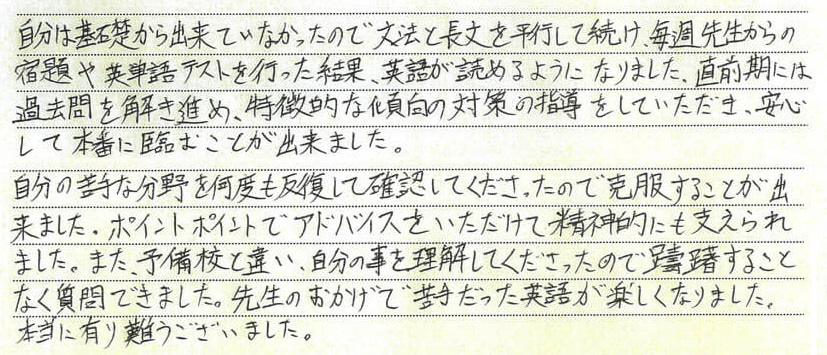 自分は基礎から出来ていなかったので文法と長文を平行して続け、毎週先生からの
宿題や英単語テストを行った結果、英語が読めるようになりました。直前期には
過去問を解き進め、特徴的な傾向の対策の指導をしていただき、安心
して本番に臨むことが出来ました。
自分の苦手な分野を何度も反復して確認してくださったので克服することが出
来ました。ポイントポイントでアドバイスをいただけて精神的にも支えられ
ました。また、予備校と違い、自分の事を理解してくださったので躊躇すること
なく質問できました。先生のおかげで苦手だった英語が楽しくなりました。
本当に有り難うございました。